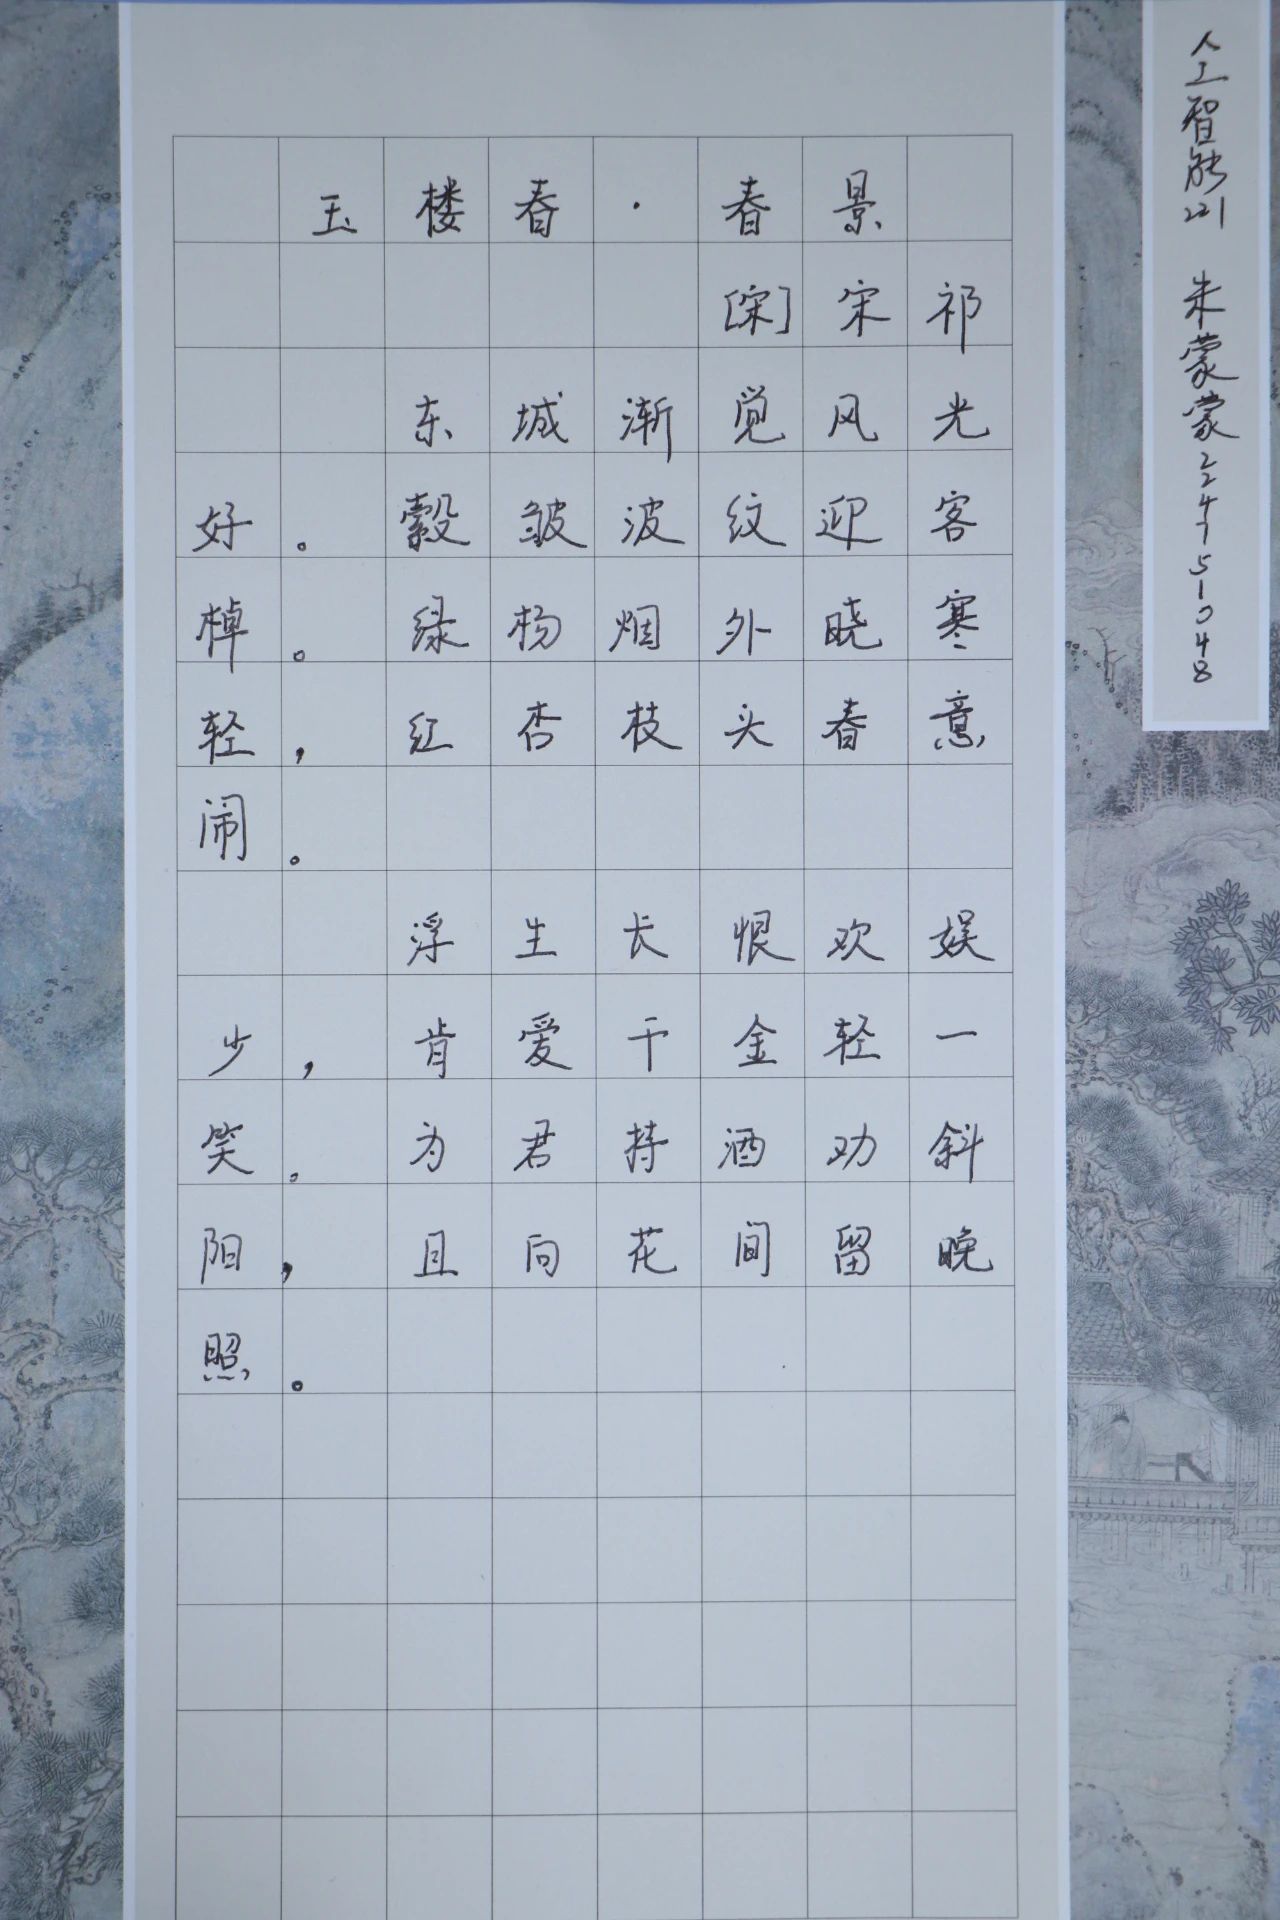 玉楼春·春景
[宋]宋祁
东城渐觉风光
好。縠皱波纹迎客
棹。绿杨烟外晓寒
轻，红杏枝头春意
闹。
浮生长恨欢娱
少，肯爱千金轻一
笑。为君持酒劝斜
阳，且向花间留晚
照。
人工智能221 朱蒙蒙2247151048